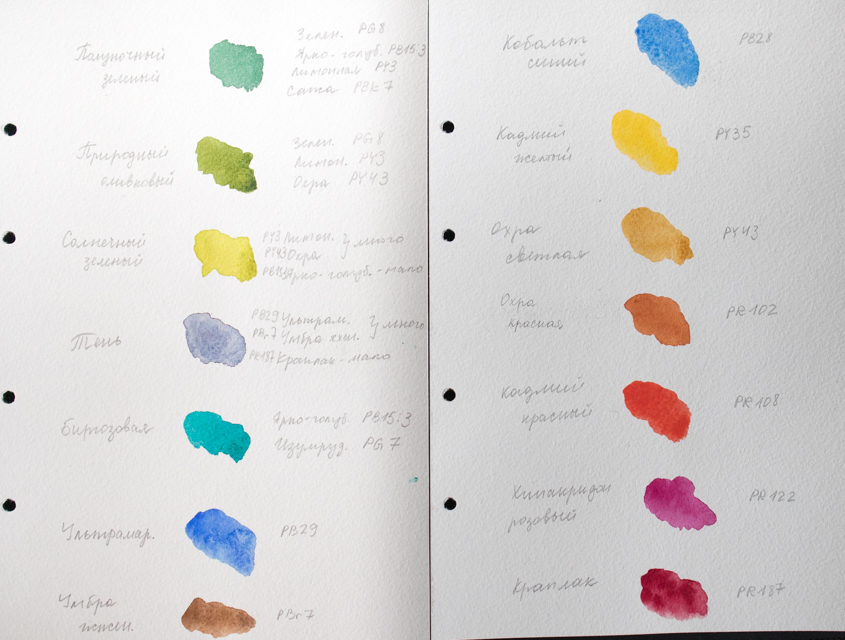 Полуночный
зеленый
Зелен. PG8
Ярко-голуб. PB15:3
Лимонная PY3
Сажа PBk7
Природный
оливковый
Зелен. PG8
Лимон. PY3
Охра PY43
Солнечный
зеленый
PY3 Лимон. } много
PY43 Охра
PB15:3 Ярко-голуб.-мало
Тень
PB29 Ультрам. } много
PBr7 Умбра жж.
PR187 Краплак-мало
Бирюзовая
Ярко-голуб. PB15:3
Изумруд. PG7
Ультрамар. PB29
Умбра
жжен.
PBr7
Кобальт
синий
PB28
Кадмий
желтый
PY35
Охра
светлая
PY43
Охра
красная
PR102
Кадмий
красный
PR108
Хинакридон
розовый
PR122
Краплак PR187